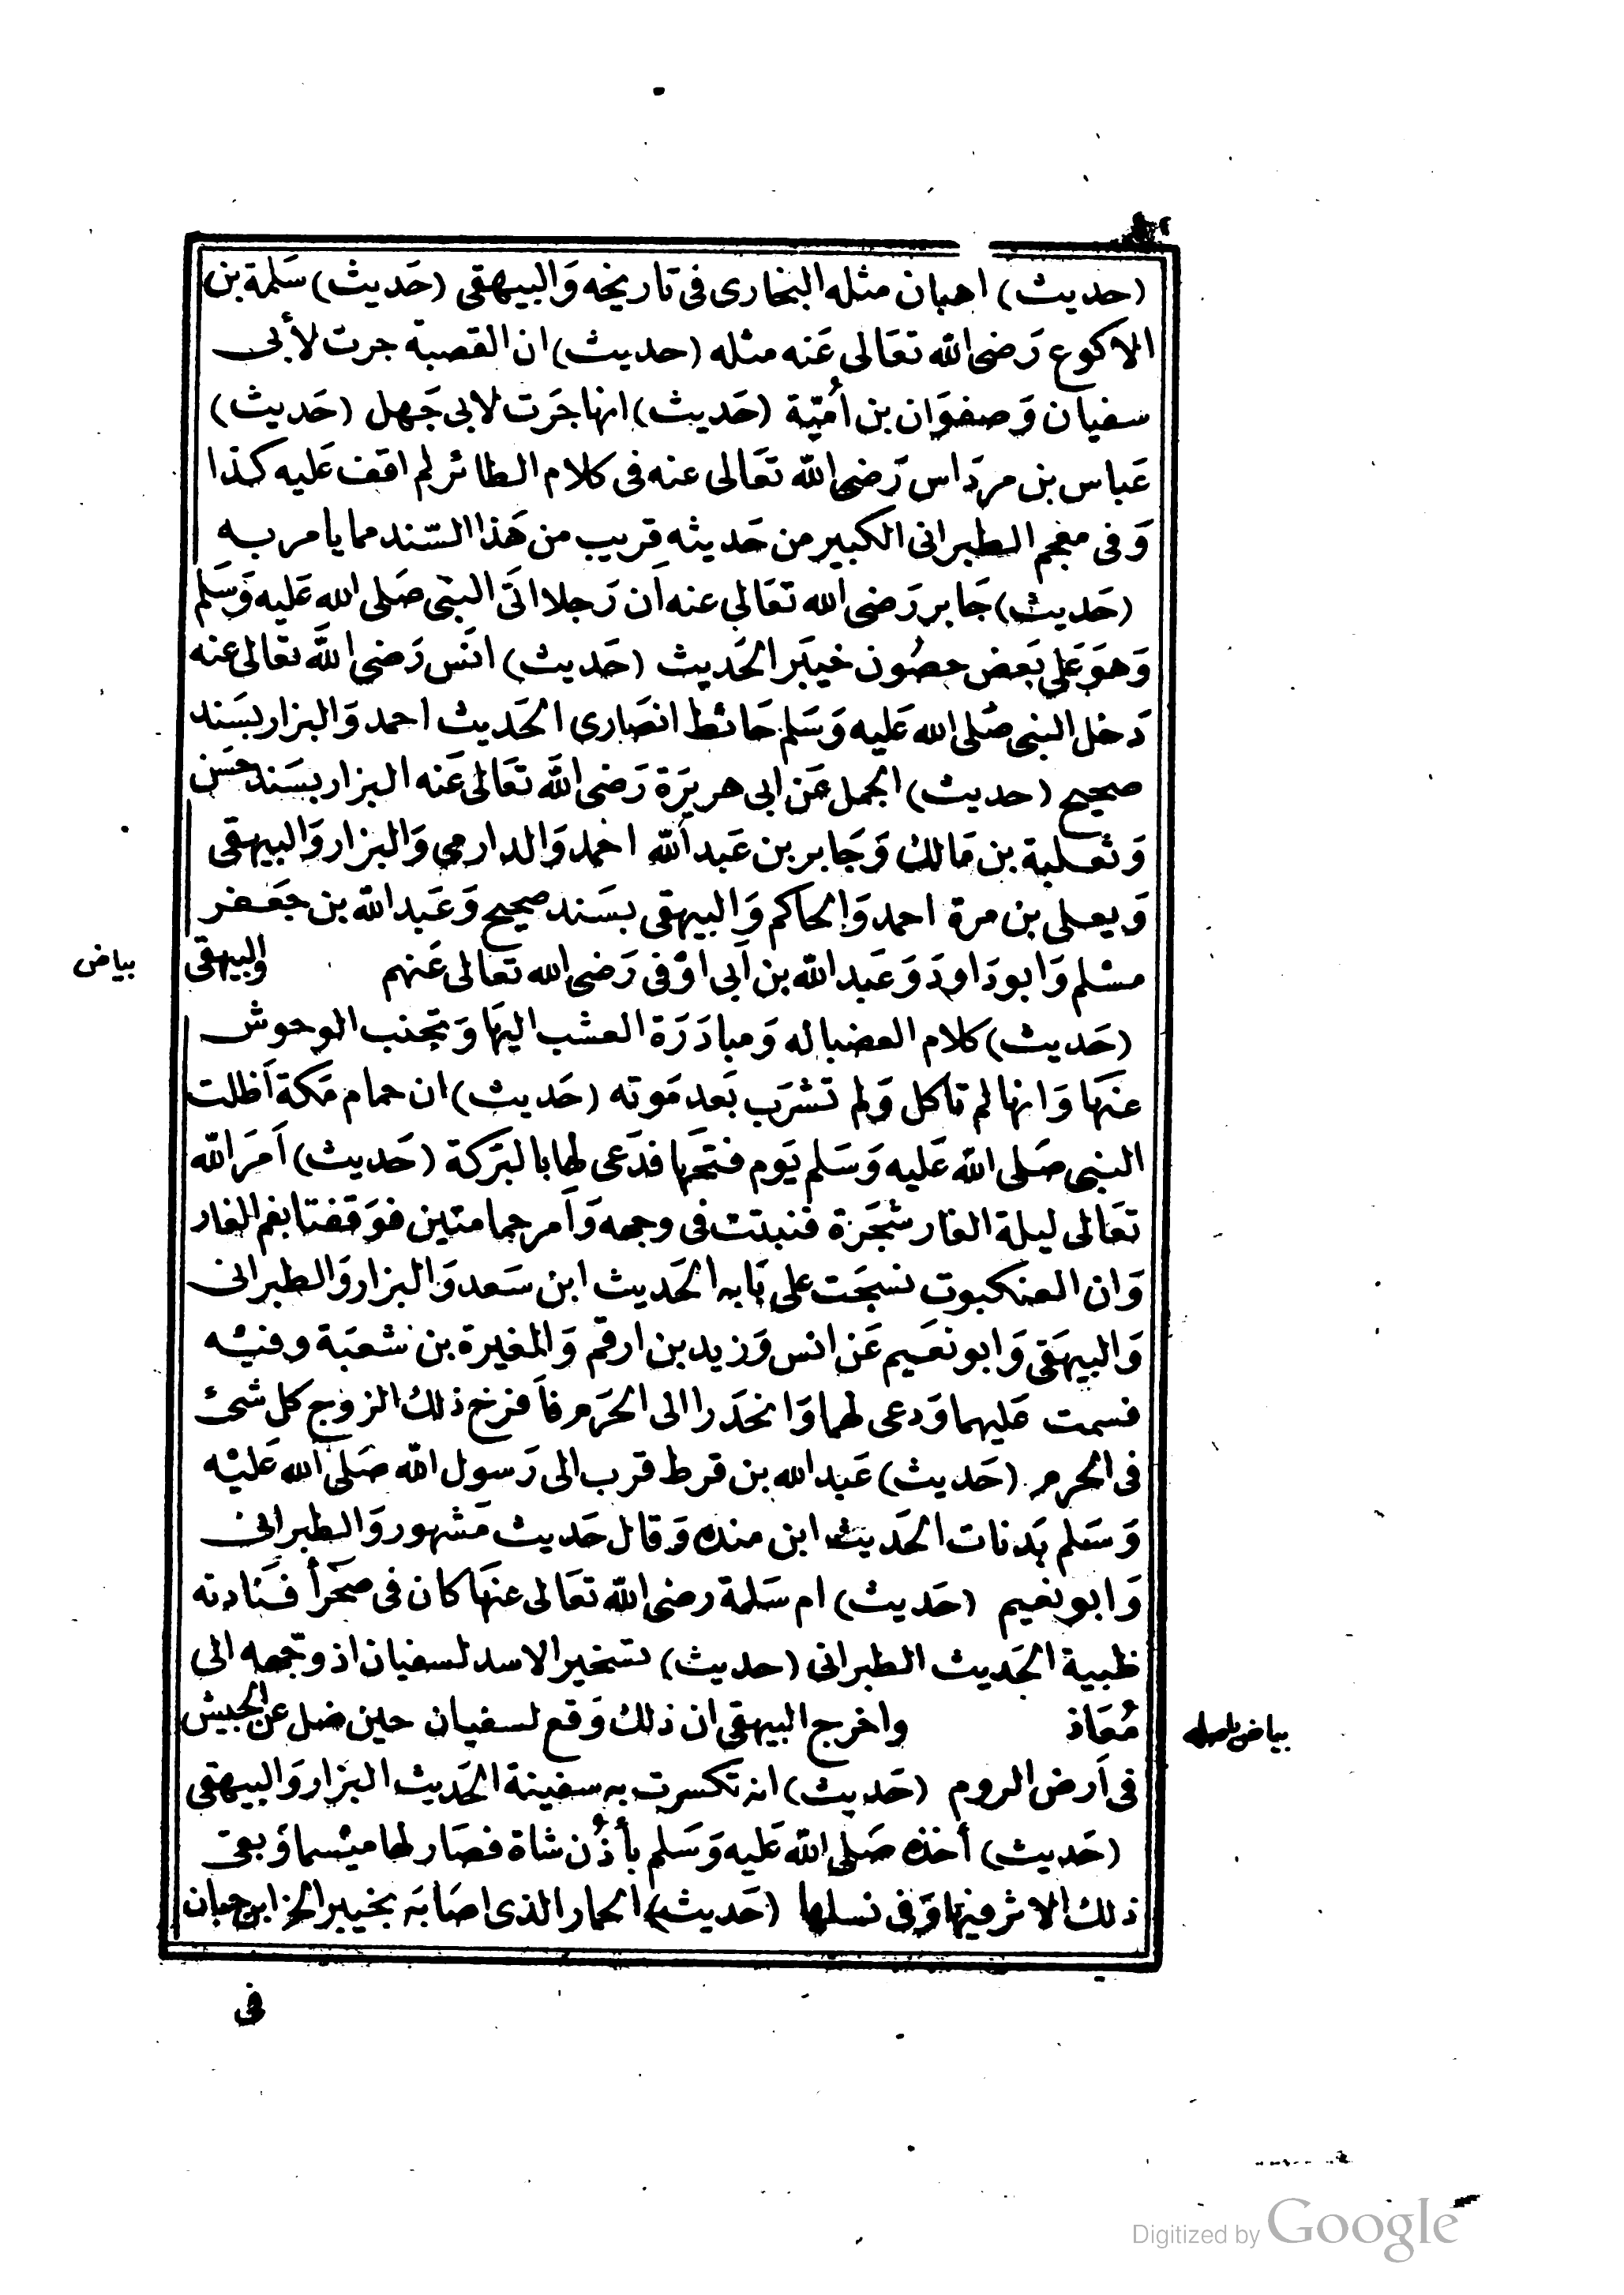 (حديث) اهبان مثله البخارى فى تاريخه وَالبيهقى (حَديث) سَلمة بن
الاكوع رَضى الله تعَالى عَنه مثله (حديث) ان القصبة جرت لأبى
سفيان وَصفوَان بن أُميّة (حَديث) انها جَرَت لابى جَهل (حَديث)
عَباس بن مردَاس رَضى الله تعَالى عنه فى كلام الطائر لم اقف عَليه كذا
وَفى معجم الطبرانى الكبير من حَديثه قريب من هَذا السّند مما يامر به
(حَديث) جَابر رَضى الله تعَالى عنه اَن رَجلا اتَى النبى صَلى الله عَليه وَسَلم
وَهوَ عَلى بَعض حصُون خيبَر الحَديث (حَديث) انَس رَضى اللهَ تعَالى عنه
دَخل النبى صَلى الله عَليه وَسَلم حَائط انصَارى الحَديث احمد وَالبزار بسَند
صحيح (حديث) الجمل عَن ابى هريرَة رَضى اللهَ تعَالى عَنه البزار بسَند حسَن
وَثعلبة بن مَالك وَجَابر بن عَبد اَلله احمد وَالدارمي وَالبزار وَالبيهقى
وَيعلى بن مرة احمد وَالحاكم وَالبيهقى بسَند صحيح وَعَبد الله بن جَعفر
مسْلم وَابو دَاودَ وَعَبد الله بن اَبى اوْفى رَضى الله تعَالى عَنهم والبيهقى
بياض
(حَديث) كلام العضبا له وَمبادَرَة العشب اليهَا وَتجنب الوحوش
عنهَا وَانها لم تاكل وَلم تشرَب بَعد مَوته (حَديث) ان حمام مَكة اَظلت
النبى صَلى الله عَليه وَسَلم يَوم فتحَها فدَعى لها بالبَركة (حَديث) اَمَرَ الله
تعَالى ليلة الغار شجَرَة فنبتت فى وجهه وَاَمر حمامتين فوَقفتا بفم الغار
وَان العنكبوت نسجَت على بَابه الحَديث ابن سَعد وَالبزار وَالطبرانى
وَالبيهَقى وَابو نعَيم عَن انس وَزيد بن ارقم وَالمغيرة بن شعبَة وفيْه
فسمت عَليهما وَدعى لهما وَانحدَرا الى الحَرَم فاَفرخ ذلك الزوج كل شئ
فى الحرم (حَديث) عَبد الله بن قرط قرب الى رَسول الله صَلى الله عَليْه
وَسَلم بَدنات الحَديث ابن منده وَقال حَديث مَشهور وَالطبرانى
وَابو نعيم (حَديث) ام سَلمة رضى الله تعَالى عنهَا كان فى صحَرأ فنَادته
ظبية الحَديث الطبرانى (حديث) تسخير الاسد لسفيان اذ وجّهه الى
مُعَاذ واخرج البيهقى ان ذلك وَقع لسفيان حين ضل عن الجيش
بياض باصله
فى اَرض الروم (حَديث) انه تكسرت به سفينة الحَديث البزار وَالبيهقى
(حَديث) أخذه صَلى الله عَليه وَسَلم بأذُن شاة فصَار لها ميْسما وَبقى
ذلك الاثر فيها وَفى نسلها (حَديث) الحمار الذى اصَابَه بخيبر الخ ابن حبان
فى
Digitized by Google